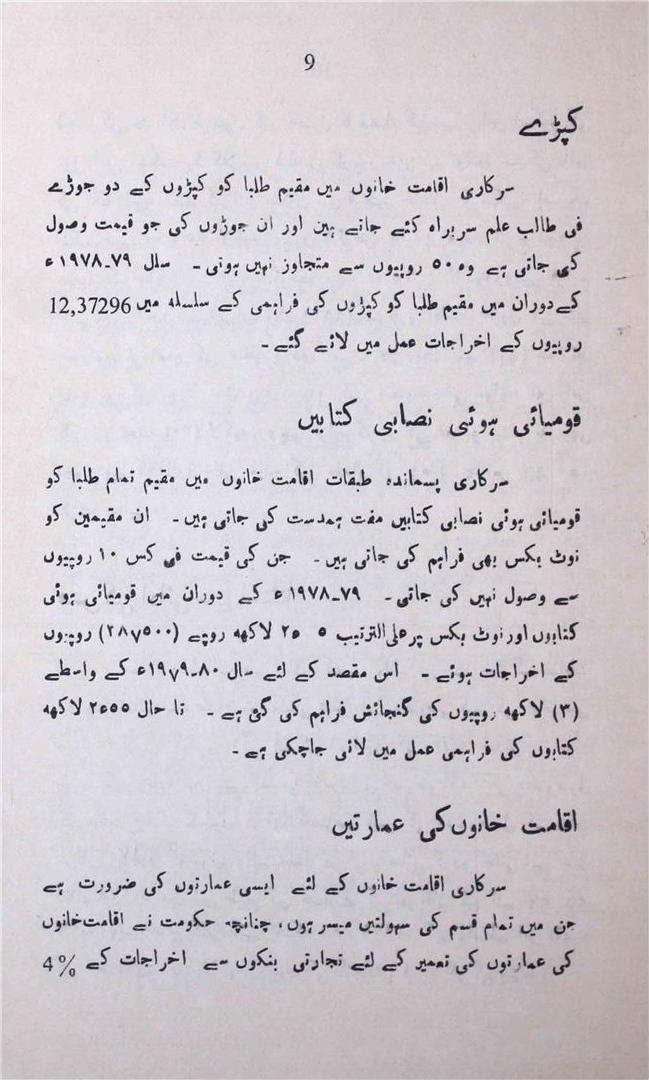 9
کپڑے
سرکاری اقامت خانوں میں مقیم طلبا کو کپڑوں کے دو جوڑے
فی طالب علم سربراہ کئے جاتے ہین اور ان جوڑوں کی جو قیمت وصول
کی جاتی ہے وہ ۵۰ روپیوں سے متجاوز نہیں ہوتی ۔ سال ۷۹۔۱۹۷۸ ء
کے دوران میں مقیم طلبا کو کپڑوں کی فراہمی کے سلسلہ میں 12,37296
روپیوں کے اخراجات عمل میں لائے گئے ۔
قومیائی ہوئی نصابی کتابیں
سرکاری پسماندہ طبقات اقامت خانوں میں مقیم تمام طلبا کو
قومیائی ہوئی نصابی کتابیں مفت ہمدست کی جاتی ہیں ۔ ان مقیمین کو
نوٹ بکس بھی فراہم کی جاتی ہیں ۔ جن کی قیمت فی کس ۱۰ روپیوں
سے وصول نہیں کی جاتی ۔ ۷۹۔۱۹۷۸ ء کے دوران میں قومیائی ہوئی
کتابوں اور نوٹ بکس پر علی الترتیب ۵ ء۲ لاکھ روپے (۲۸۷۵۰۰) روپیوں
کے اخراجات ہوئے ۔ اس مقصد کے لئے سال ۸۰۔۱۹۷۹ء کے واسطے
(۳) لاکھ روپیوں کی گنجائش فراہم کی گئی ہے ۔ تا حال ۵۵ء۲ لاکھ
کتابوں کی فراہمی عمل میں لائی جاچکی ہے ۔
اقامت خانوں کی عمارتیں
سرکاری اقامت خانوں کے لئے ایسی عمارتوں کی ضرورت ہے
جن میں تمام قسم کی سہولتیں میسر ہوں، چنانچہ حکومت نے اقامت خانوں
کی عمارتوں کی تعمیر کے لئے تجارتی بنکوں سے اخراجات کے 4%